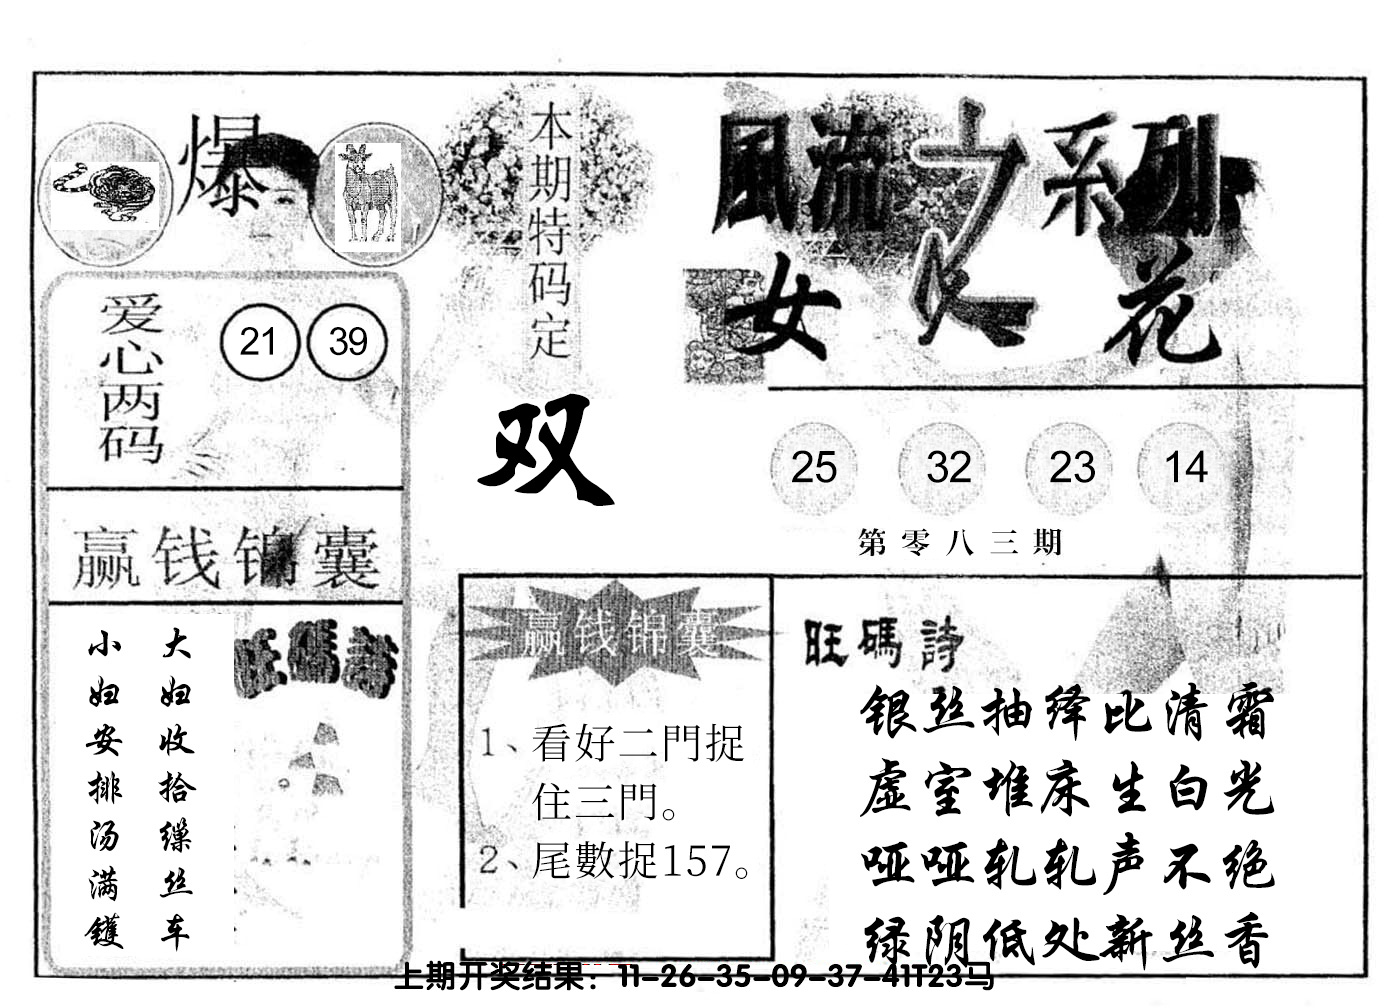 爆
本期特码定
双
風流之系列
女人花
爱心两码
21 39
25 32 23 14
第零八三期
赢钱锦囊
大妇收拾缫丝车
小妇安排汤满镬
旺碼詩
赢钱锦囊
1、看好二門捉
住三門。
2、尾數捉157。
旺碼詩
银丝抽绎比清霜
虚室堆床生白光
哑哑轧轧声不绝
绿阴低处新丝香
上期开奖结果：11-26-35-09-37-41T23马